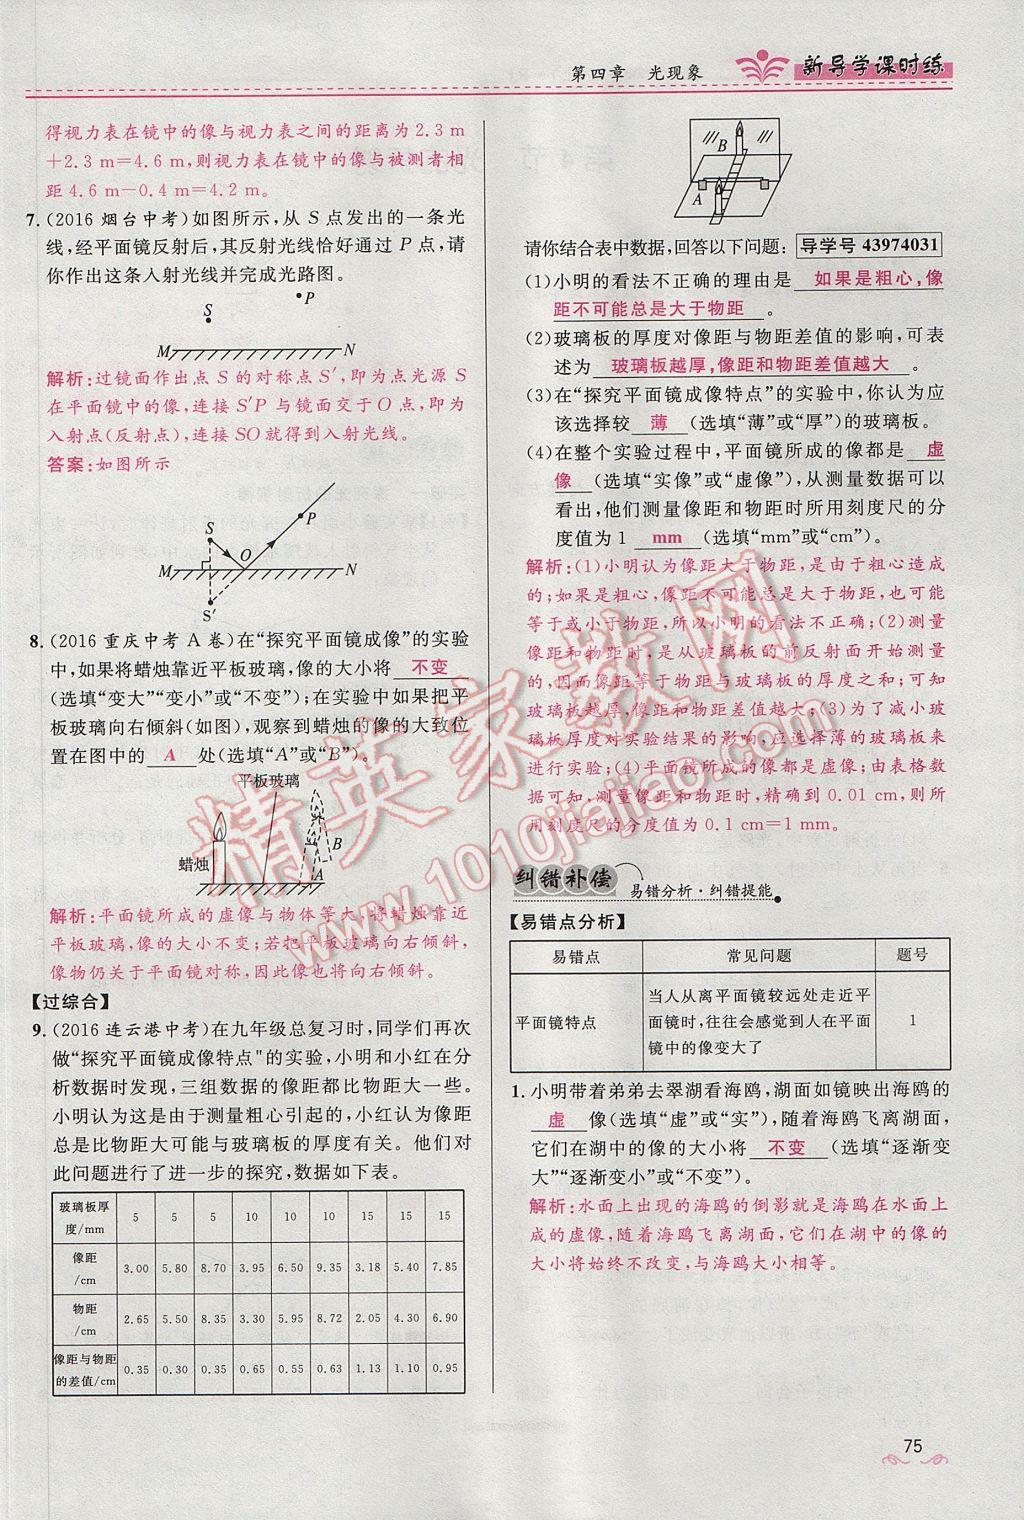 第四章　光现象
新导学课时练
得视力表在镜中的像与视力表之间的距离为2.3 m
+2.3 m=4.6 m,则视力表在镜中的像与被测者相
距4.6 m-0.4 m=4.2 m。
7.(2016 烟台中考)如图所示,从 S 点发出的一条光
线,经平面镜反射后,其反射光线恰好通过 P 点,请
你作出这条入射光线并完成光路图。
P
S
M
N
解析:过镜面作出点 S 的对称点 S′,即为点光源 S
在平面镜中的像,连接 S′P 与镜面交于 O 点,即为
入射点(反射点),连接 SO 就得到入射光线。
答案:如图所示
S
P
M
O
N
S′
8.(2016 重庆中考 A 卷)在“探究平面镜成像”的实验
中,如果将蜡烛靠近平板玻璃,像的大小将 不变
(选填“变大”“变小”或“不变”);在实验中如果把平
板玻璃向右倾斜(如图),观察到蜡烛的像的大致位
置在图中的 A 处(选填“A”或“B”)。
平板玻璃
蜡烛
B
A
解析:平面镜所成的虚像与物体等大,将蜡烛靠近
平板玻璃,像的大小不变;若把平板玻璃向右倾斜,
像物仍关于平面镜对称,因此像也将向右倾斜。
【过综合】
9.(2016 连云港中考)在九年级总复习时,同学们再次
做“探究平面镜成像特点"的实验,小明和小红在分
析数据时发现,三组数据的像距都比物距大一些。
小明认为这是由于测量粗心引起的,小红认为像距
总是比物距大可能与玻璃板的厚度有关。他们对
此问题进行了进一步的探究,数据如下表。
玻璃板厚度/mm 5 5 5 10 10 10 15 15 15
像距/cm 3.00 5.80 8.70 3.95 6.50 9.35 3.18 5.40 7.85
物距/cm 2.65 5.50 8.35 3.30 5.90 8.72 2.05 4.30 6.90
像距与物距的差值/cm 0.35 0.30 0.35 0.65 0.60 0.63 1.13 1.10 0.95
B
A
请你结合表中数据,回答以下问题:导学号 43974031
(1)小明的看法不正确的理由是 如果是粗心,像
距不可能总是大于物距 。
(2)玻璃板的厚度对像距与物距差值的影响,可表
述为 玻璃板越厚,像距和物距差值越大 。
(3)在“探究平面镜成像特点”的实验中,你认为应
该选择较 薄 (选填“薄”或“厚”)的玻璃板。
(4)在整个实验过程中,平面镜所成的像都是 虚
像 (选填“实像”或“虚像”),从测量数据可以
看出,他们测量像距和物距时所用刻度尺的分
度值为 1 mm (选填“mm”或“cm”)。
解析:(1)小明认为像距大于物距,是由于粗心造成
的;如果是粗心,像距不可能总是大于物距,也可能
等于或小于物距,所以小明的看法不正确;(2)测量
像距和物距时,是从玻璃板的前反射面开始测量
的,因而像距等于物距与玻璃板的厚度之和;可知
玻璃板越厚,像距和物距差值越大;(3)为了减小玻
璃板厚度对实验结果的影响,应选择薄的玻璃板来
进行实验;(4)平面镜所成的像都是虚像;由表格数
据可知,测量像距和物距时,精确到 0.01 cm,则所
用刻度尺的分度值为 0.1 cm=1 mm。
纠错补偿 易错分析·纠错提能
【易错点分析】
易错点 常见问题 题号
平面镜特点 当人从离平面镜较远处走近平面镜时,往往会感觉到人在平面镜中的像变大了 1
1.小明带着弟弟去翠湖看海鸥,湖面如镜映出海鸥的
虚 像(选填“虚”或“实”),随着海鸥飞离湖面,
它们在湖中的像的大小将 不变 (选填“逐渐变
大”“逐渐变小”或“不变”)。
解析:水面上出现的海鸥的倒影就是海鸥在水面上
成的虚像,随着海鸥飞离湖面,它们在湖中的像的
大小将始终不改变,与海鸥大小相等。
精英家教网
www.1010jiajiao.com
75